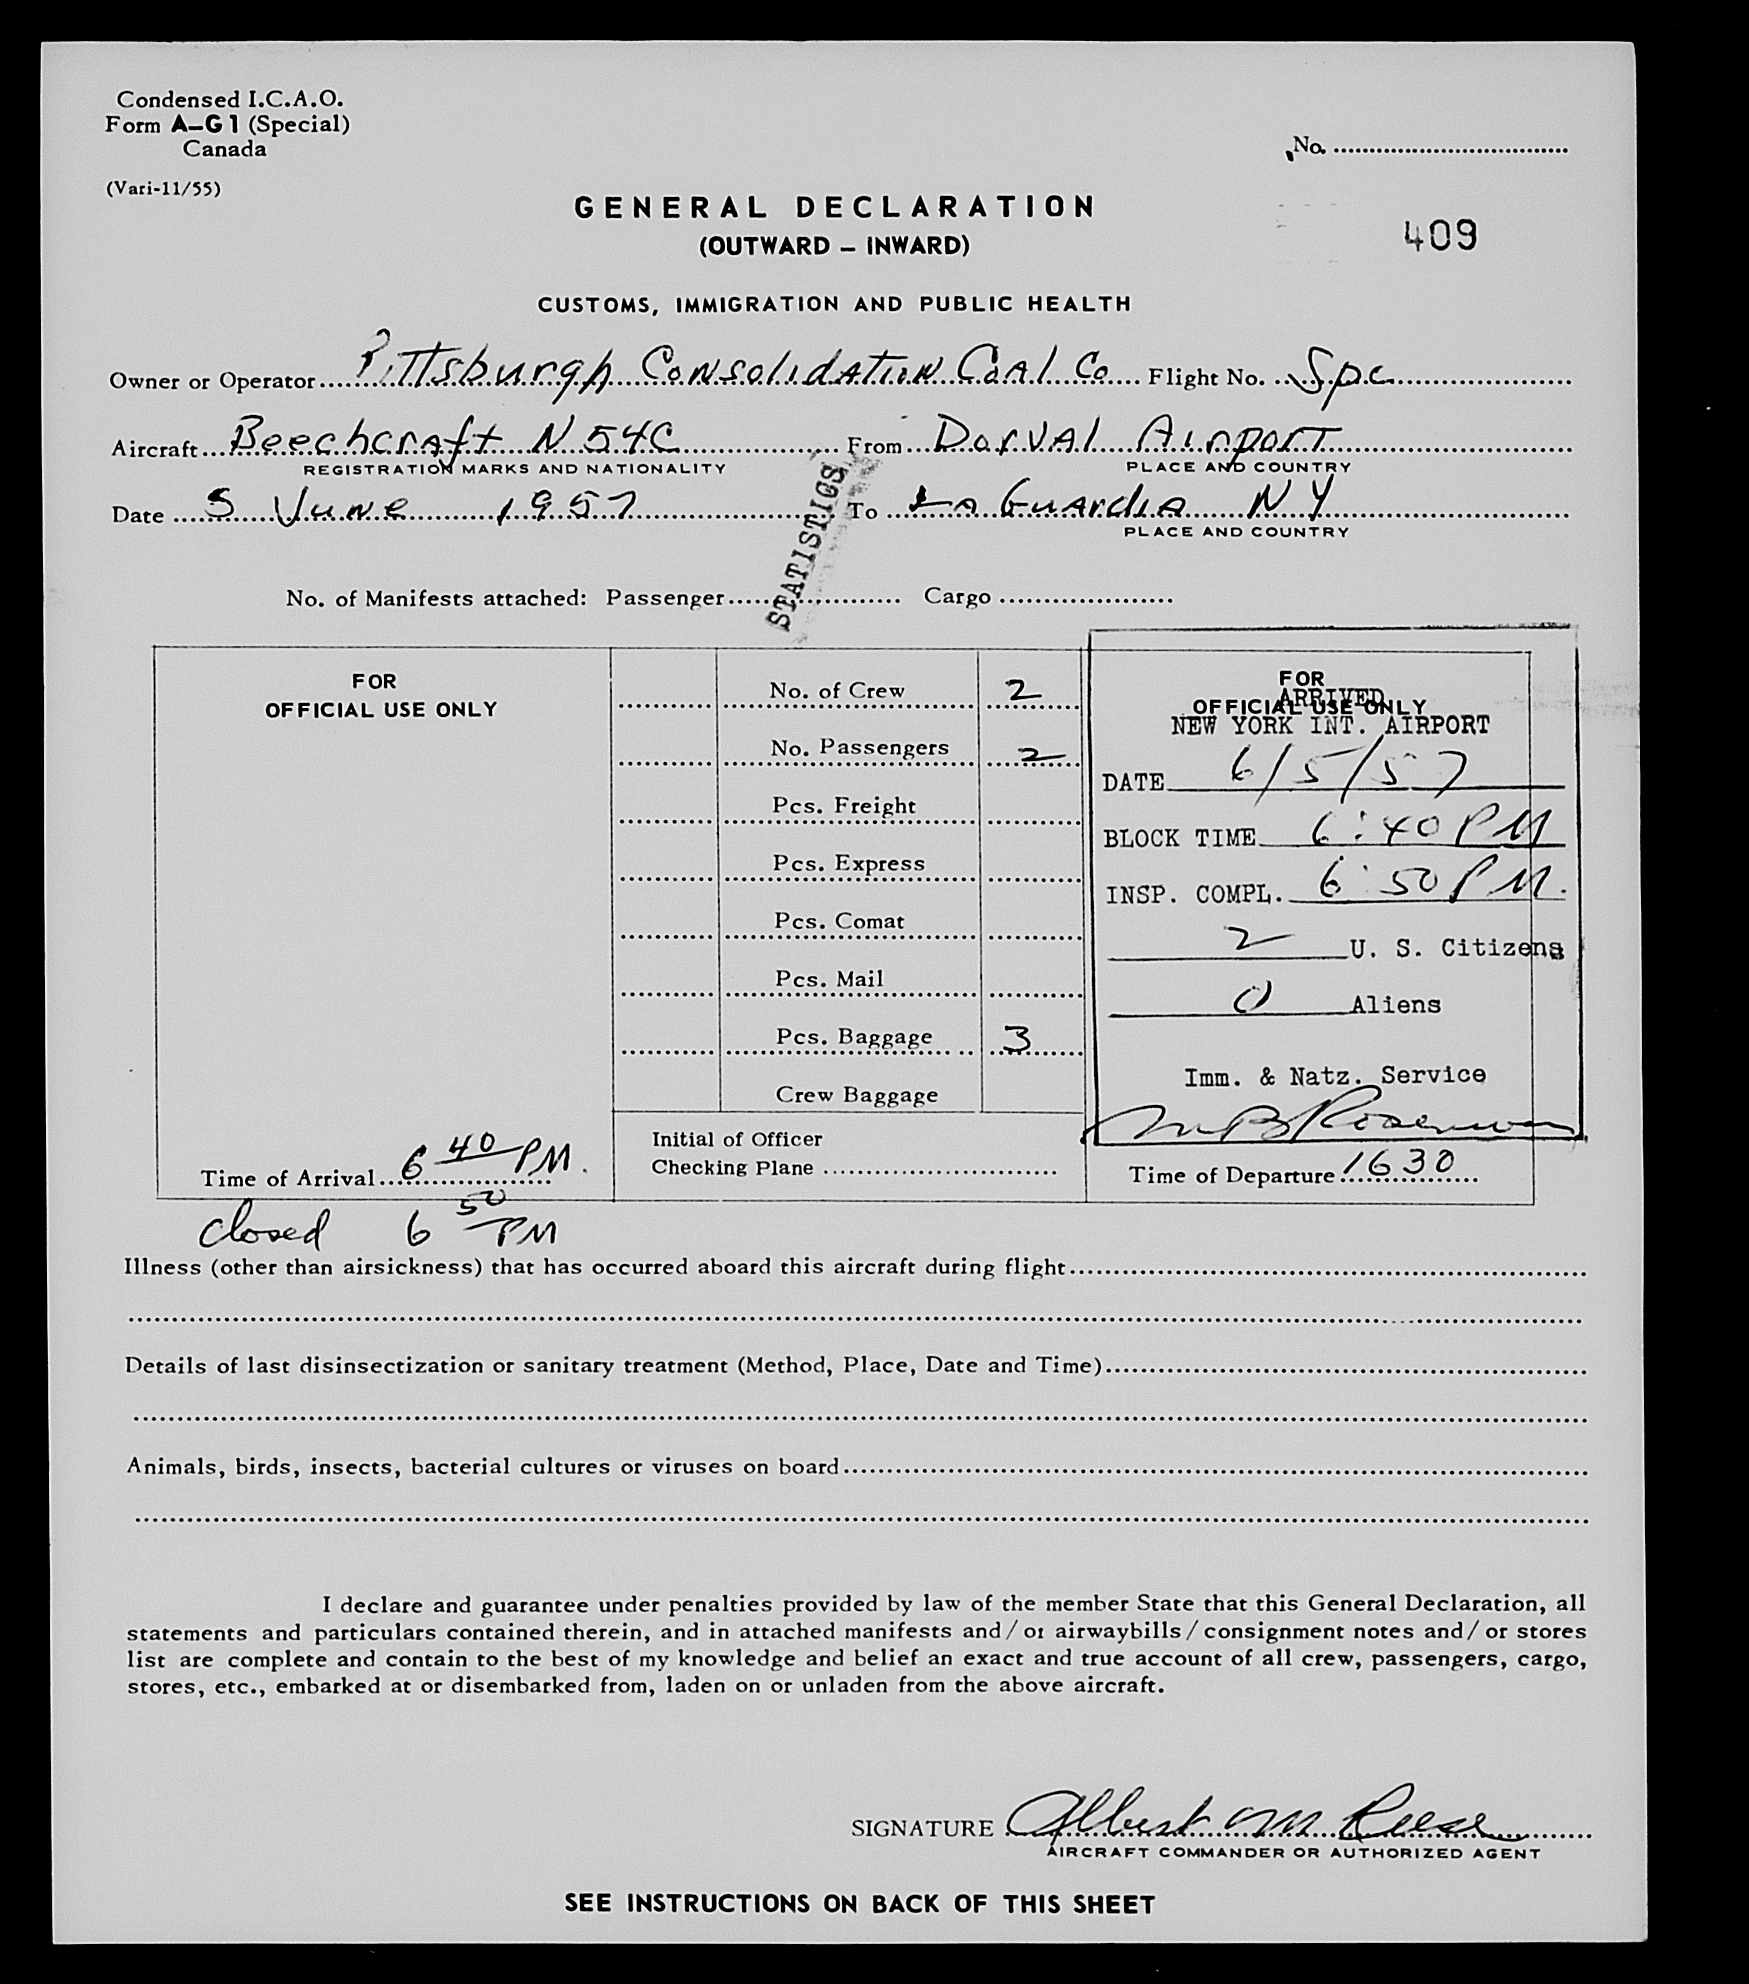 Condensed I.C.A.O.
Form A–G1 (Special)
Canada
(Vari-11/55)
No. ................................
GENERAL DECLARATION
(OUTWARD – INWARD)
409
CUSTOMS, IMMIGRATION AND PUBLIC HEALTH
Owner or Operator Pittsburgh Consolidation Coal Co Flight No. Spc
Aircraft Beechcraft N 54C From Dorval Airport
REGISTRATION MARKS AND NATIONALITY PLACE AND COUNTRY
Date 5 June 1957 To La Guardia N Y
PLACE AND COUNTRY
STATISTICS
No. of Manifests attached: Passenger.................... Cargo ....................
FOR
OFFICIAL USE ONLY
Time of Arrival 6 40 PM.
closed 6 50 PM
No. of Crew 2
No. Passengers 2
Pcs. Freight
Pcs. Express
Pcs. Comat
Pcs. Mail
Pcs. Baggage 3
Crew Baggage
Initial of Officer
Checking Plane ...........................
FOR
OFFICIAL USE ONLY
ARRIVED
NEW YORK INT. AIRPORT
DATE 6/5/57
BLOCK TIME 6:40 PM
INSP. COMPL. 6:50 PM.
2 U. S. Citizens
0 Aliens
Imm. & Natz. Service
Time of Departure 1630
Illness (other than airsickness) that has occurred aboard this aircraft during flight
Details of last disinsectization or sanitary treatment (Method, Place, Date and Time)
Animals, birds, insects, bacterial cultures or viruses on board
I declare and guarantee under penalties provided by law of the member State that this General Declaration, all
statements and particulars contained therein, and in attached manifests and/or airwaybills/consignment notes and/or stores
list are complete and contain to the best of my knowledge and belief an exact and true account of all crew, passengers, cargo,
stores, etc., embarked at or disembarked from, laden on or unladen from the above aircraft.
SIGNATURE Albert M Reese
AIRCRAFT COMMANDER OR AUTHORIZED AGENT
SEE INSTRUCTIONS ON BACK OF THIS SHEET